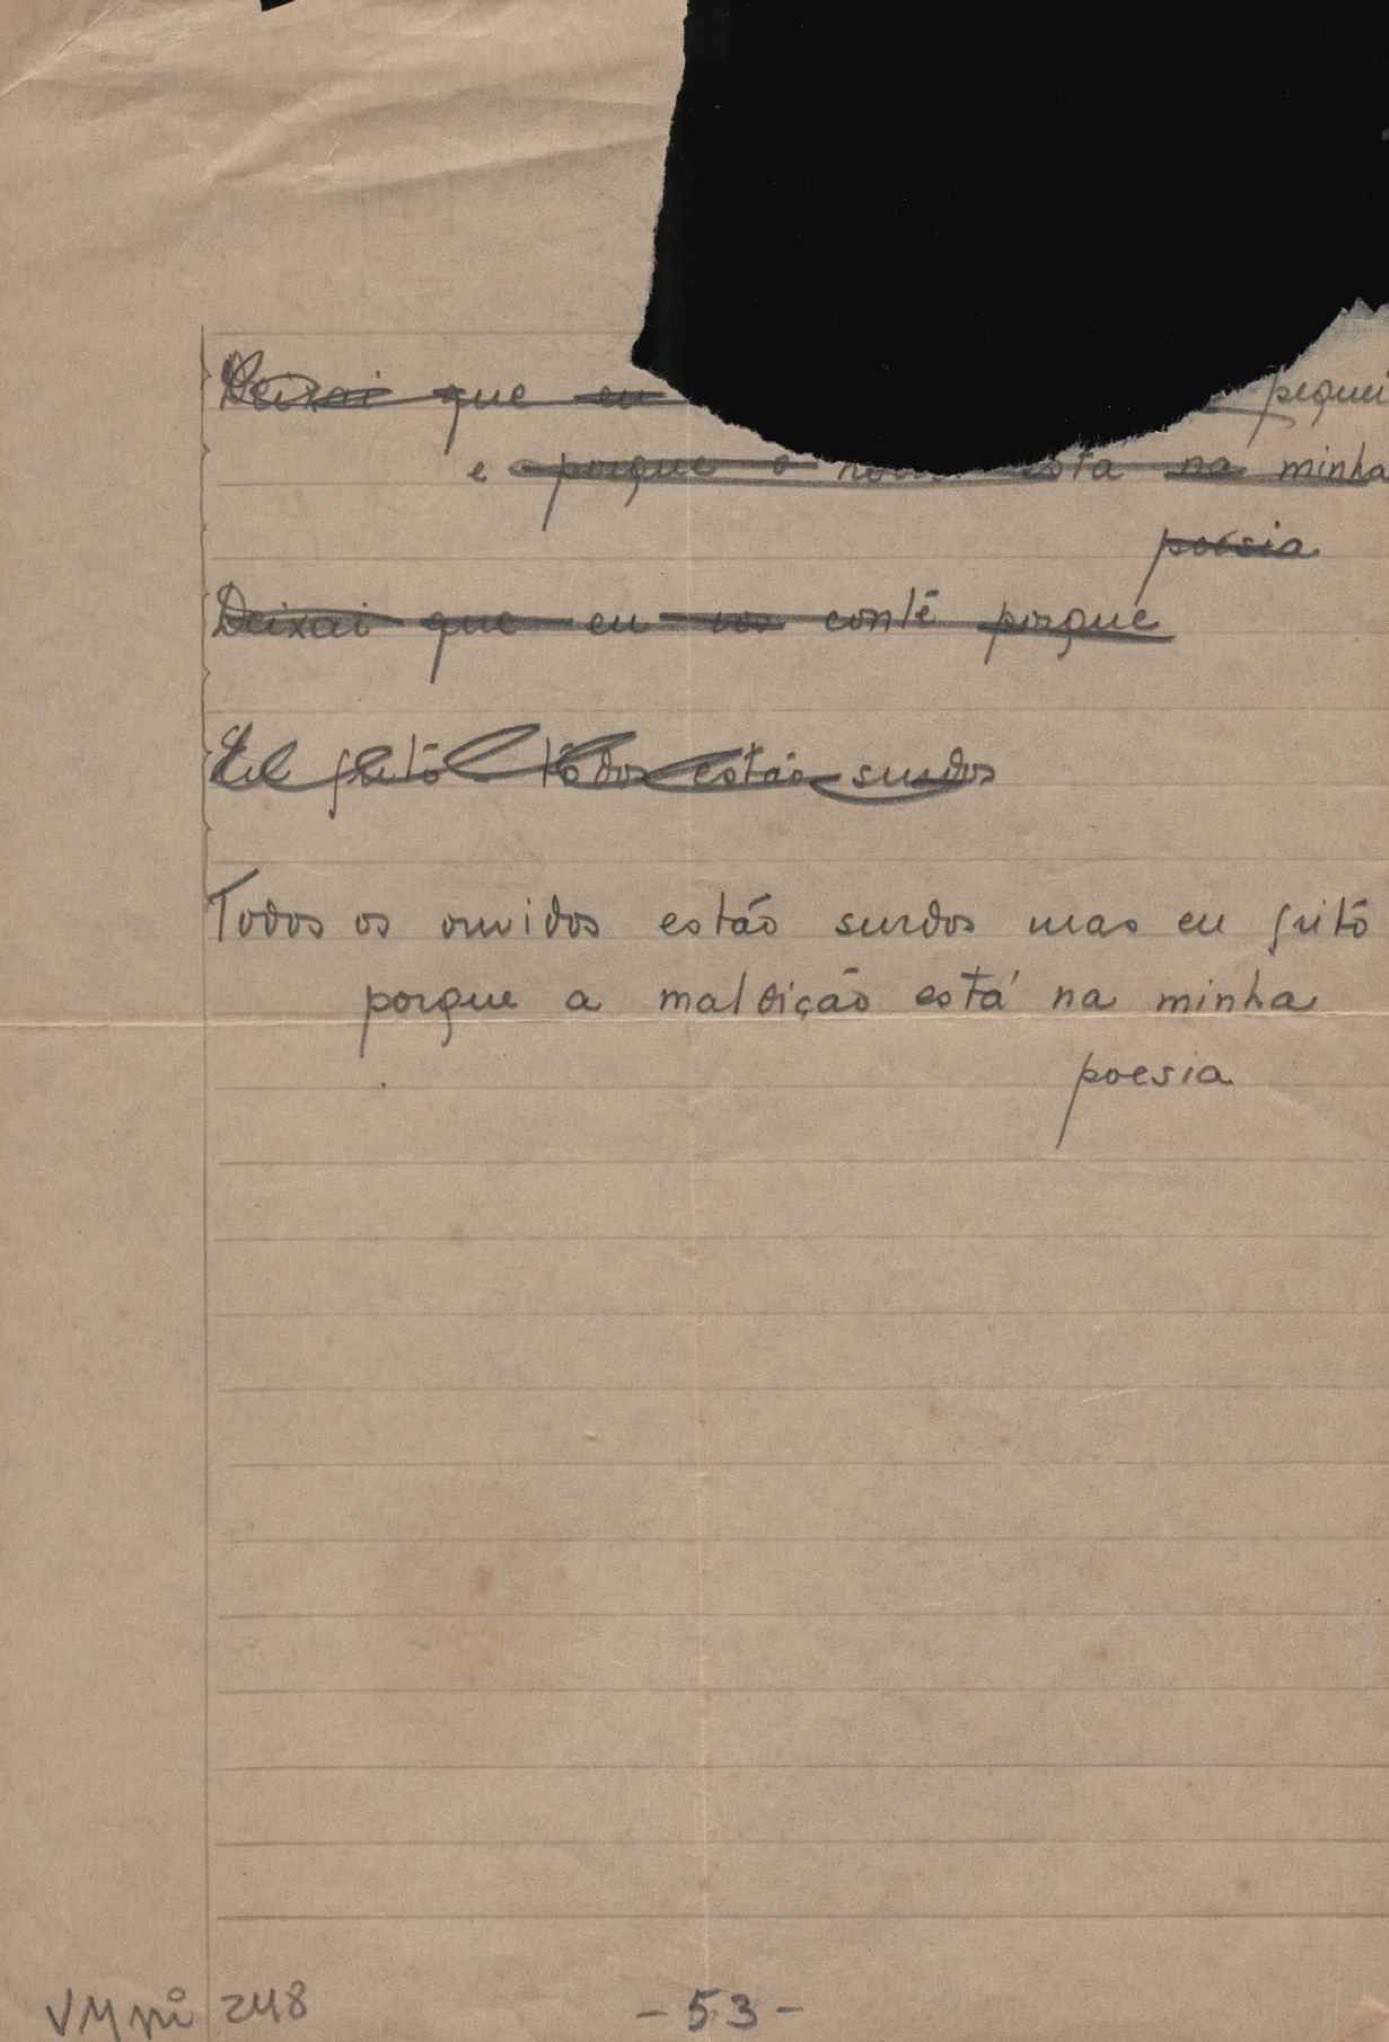 Deixai que eu pequei
e porque o está na minha
poesia
Deixai que eu vos conte porque
Eu grito todos estão surdos
Todos os ouvidos estão surdos mas eu grito
porque a maldição está na minha
poesia
VMpi 248
- 53 -